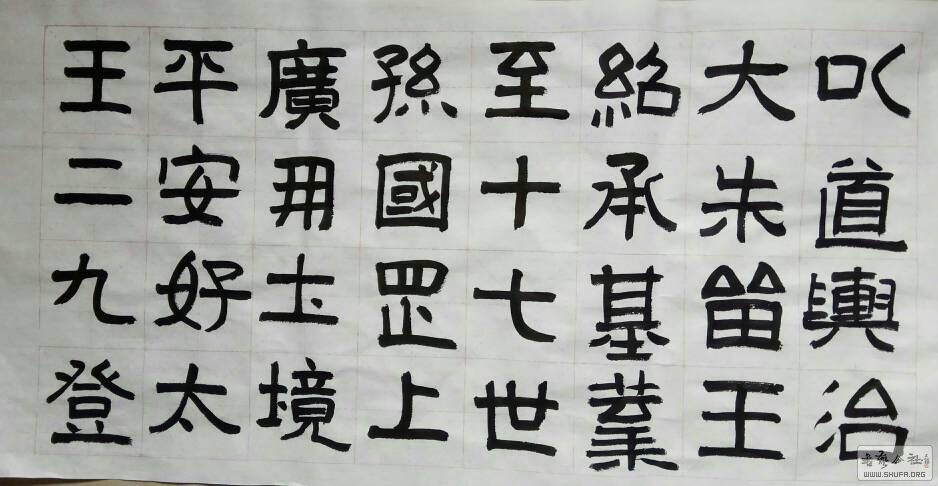 㕥道輿治
大朱留王
紹承基業
至十七世
孫國罡上
廣開圡境
平安好太
王二九登
书艺公社
WWW.SHUFA.ORG